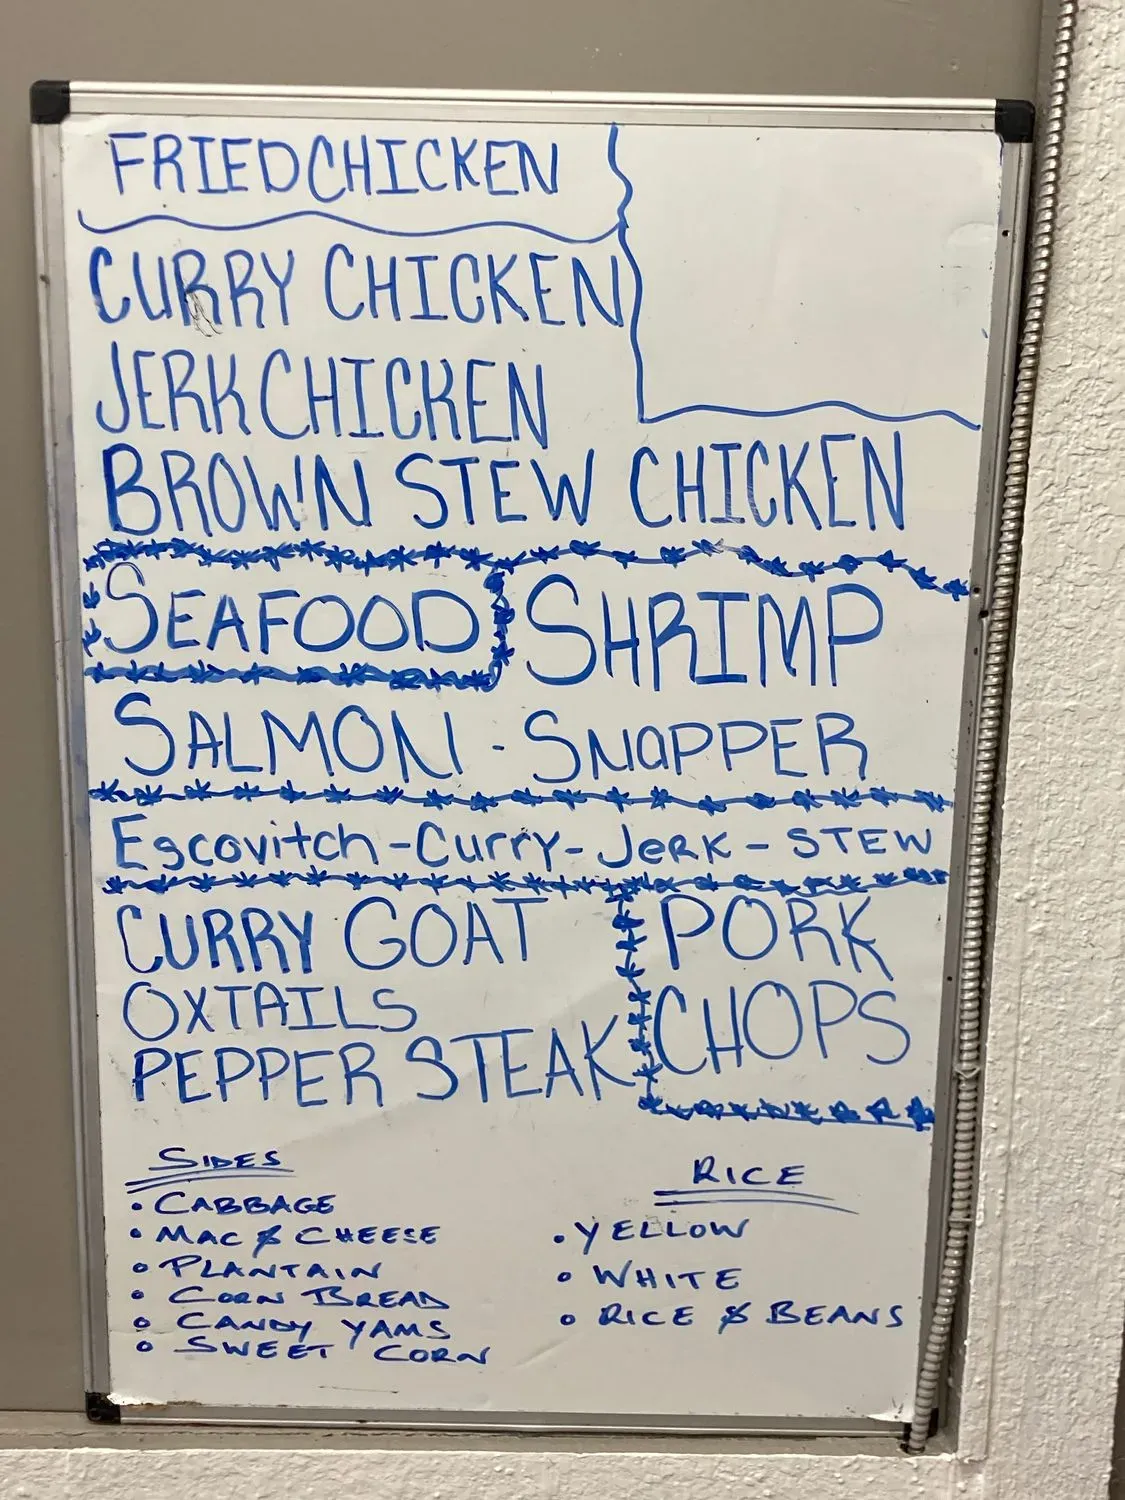 FRIED CHICKEN
CURRY CHICKEN
JERK CHICKEN
BROWN STEW CHICKEN
SEAFOOD SHRIMP
SALMON - SNAPPER
Escovitch - Curry - Jerk - STEW
CURRY GOAT
OXTAILS
PEPPER STEAK
PORK
CHOPS
SIDES
• CABBAGE
• MAC & CHEESE
• PLANTAIN
• CORN BREAD
• CANDY YAMS
• SWEET CORN
RICE
• YELLOW
• WHITE
• RICE & BEANS